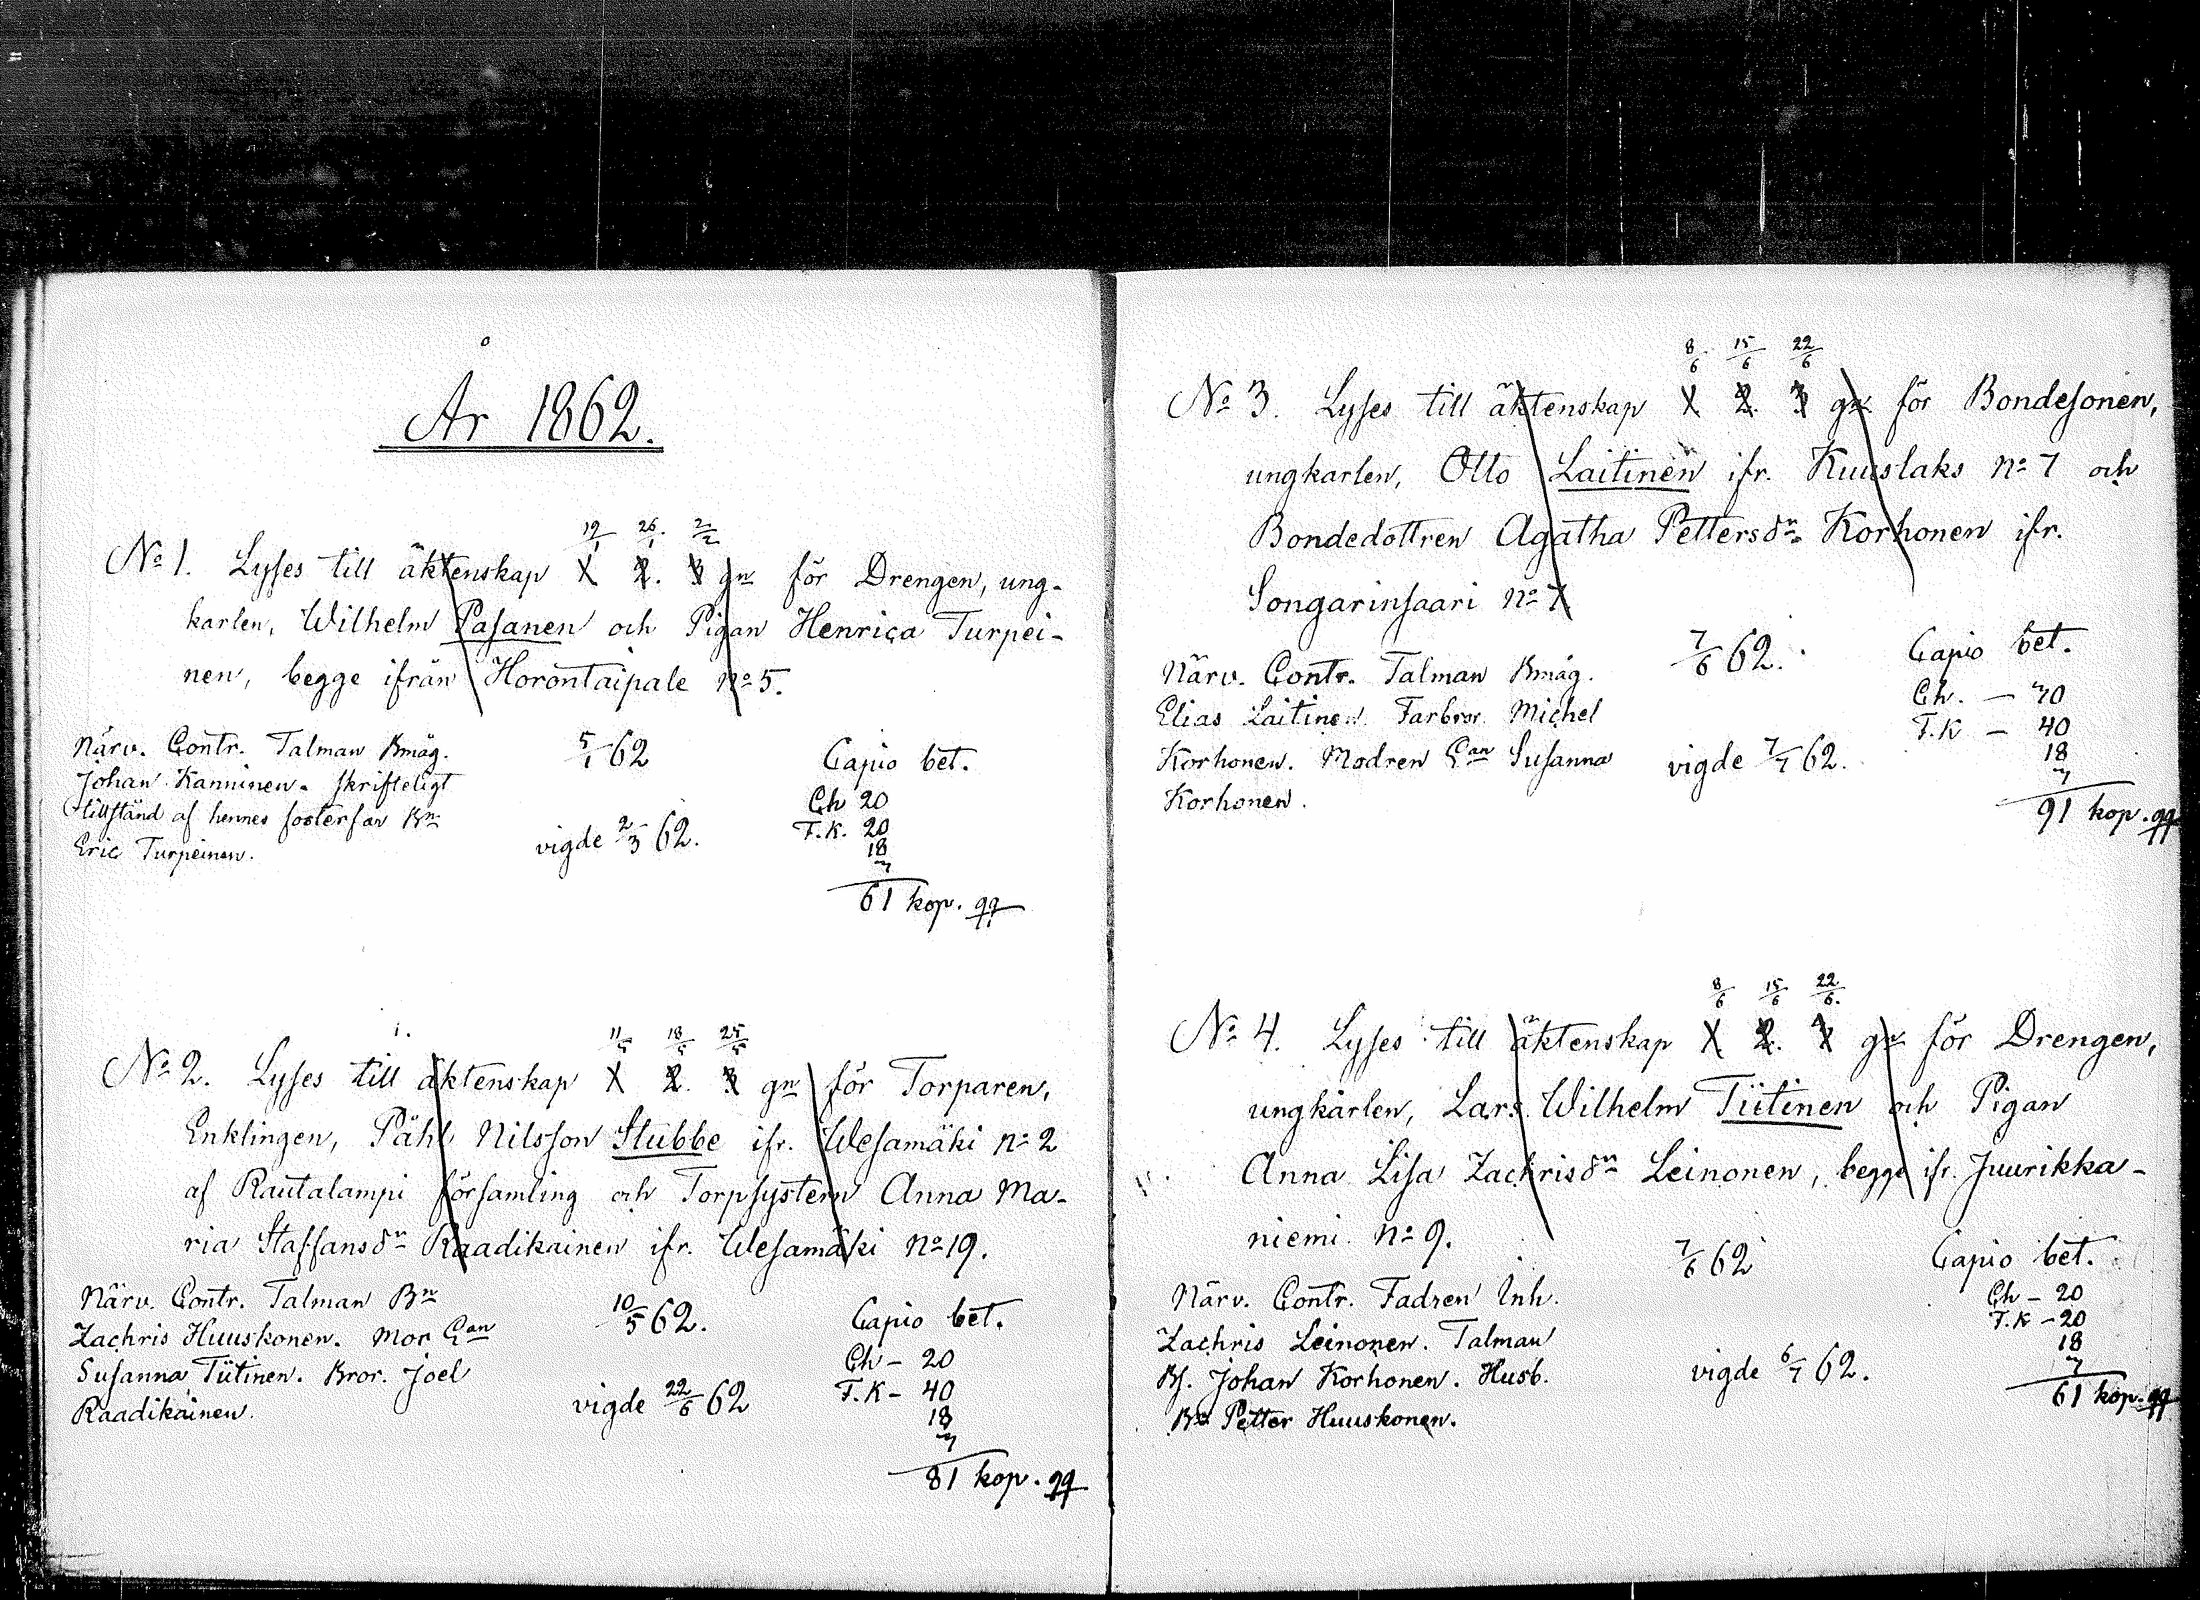 År 1862.
19/1 26/1 2/2
No 1. Lyses till äktenskap 1 2. 3 gn för Drengen, ung-
karlen, Wilhelm Pasanen och Pigan Henrica Turpei-
nen, begge ifrån Horontaipale no 5.
Närv. Contr. Talman Bmåg.
Johan Kanninen. Skrifteligt
tillstånd af hennes fosterfar Bn
Eric Turpeinen.
5/1 62
vigde 2/3 62.
Capio bet.
Ch 20
F.K. 20
18
3
61 kop. qq
11/5 18/5 25/5
No 2. Lyses till äktenskap 1 2. 3 gn för Torparen,
Enklingen, Påhl Nilsson Stubbe ifr. Wesamäki no 2
af Rautalampi församling och Torpsystern Anna Ma-
ria Staffansdr Raadikainen ifr. Wesamäki No 19.
Närv. Contr. Talman Bn
Zachris Huuskonen. Mor Ean
Susanna Tiitinen. Bror. Joel
Raadikainen.
10/5 62.
vigde 22/6 62
Capio bet.
Ch – 20
F.K – 40
18
3
81 kop. qq
8/6 15/6 22/6
No 3. Lyses till äktenskap 1 2. 3 gn för Bondesonen,
ungkarlen, Otto Laitinen ifr. Kuuslaks no 7 och
Bondedottren Agatha Pettersdr Korhonen ifr.
Songarinsaari no 7
Närv. Contr. Talman Bmåg.
Elias Laitinen. Farbror Michel
Korhonen. Modren Ean Susanna
Korhonen.
7/6 62.
vigde 7/7 62.
Capio bet.
Ch. – 30
F.K – 40
18
3
91 kop. qq
8/6 15/6 22/6.
No 4. Lyses till äktenskap 1 2. 3 gn för Drengen,
ungkarlen, Lars Wilhelm Tiitinen och Pigan
Anna Lisa Zachrisdr Leinonen, begge ifr. Juurikka-
niemi no 9.
Närv. Contr. Fadren Inh.
Zachris Leinonen. Talman
Bs. Johan Korhonen. Husb.
Bn Petter Huuskonen.
7/6 62
vigde 6/7 62.
Capio bet.
Ch – 20
F.K – 20
18
3
61 kop. qq